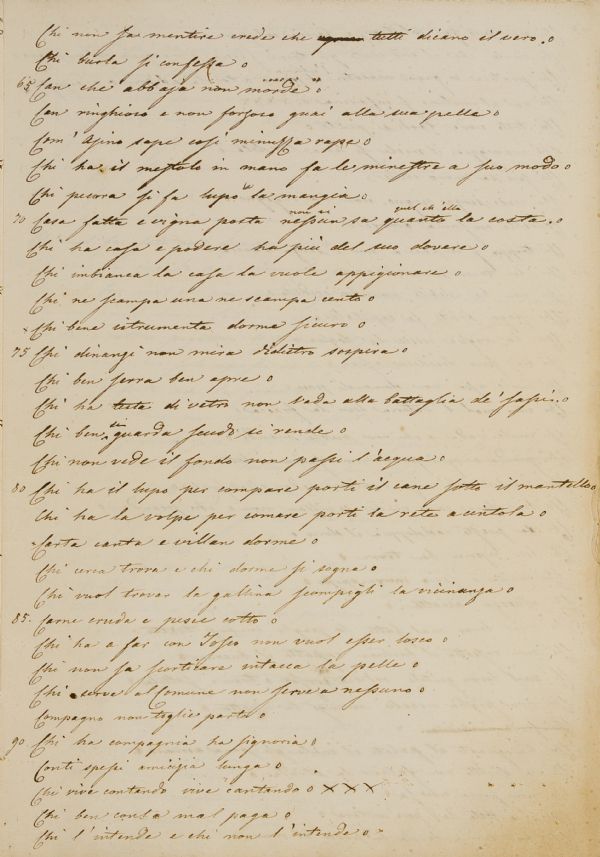 Chi non sa mentire crede che tutti dicano il vero.
Chi burla si confessa
65 Can che abbaja non morde
Can ringhioso e non forzoso guai alla sua pelle
Com' Asino sape così minuzza rape
Chi ha il mestolo in mano fa le minestre a suo modo
Chi pecora si fa lupo la mangia
70 Casa fatta e vigna posta non si sa quanto la costa. quel ch'ella
Chi ha casa e podere ha più del suo dovere
Chi imbianca la casa la vuole appigionare
Chi ne scampa una ne scampa cento
Chi bene istrumenta dorme sicuro
75 Chi dinanzi non mira didietro sospira
Chi ben serra ben apre
Chi ha testa di vetro non vada alla battaglia de' sassi.
Chi ben guarda scudo si rende
Chi non vede il fondo non passi l'acqua
80 Chi ha il lupo per compare porti il cane sotto il mantello
Chi ha la volpe per comare porti la rete a cintola
Carta canta e villan dorme
Chi cerca trova e chi dorme si sogna
Chi vuol trovar la gallina scompigli la vicinanza
85. Carne cruda e pesce cotto
Chi ha a far con Tosco non vuol esser losco
Chi non sa scorticare intacca la pelle
Chi serve al Comune non serve a nessuno
Compagno non toglie parte
90 Chi ha compagnia ha signoria
Conti spessi amicizia lunga
Chi vive contando vive cantando x x x
Chi ben conta mal paga
Chi l'intende e chi non l'intende